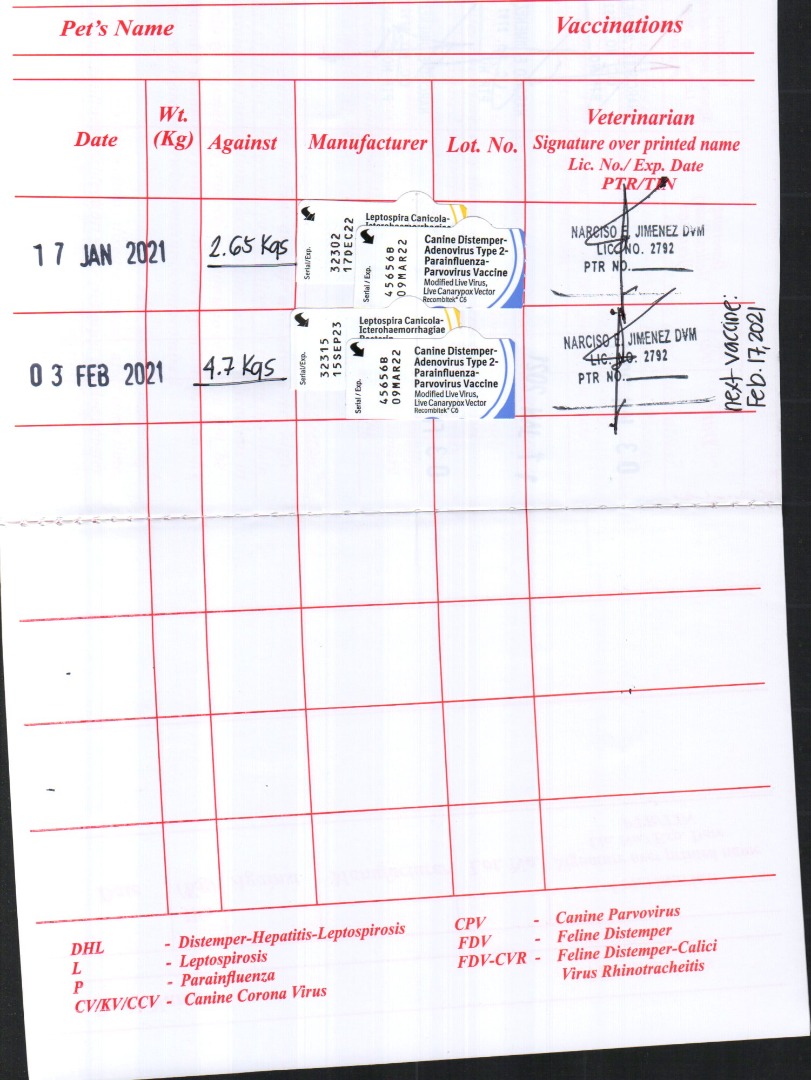 Pet's Name
Vaccinations
Date
Wt.
(Kg)
Against
Manufacturer
Lot. No.
Veterinarian
Signature over printed name
Lic. No./ Exp. Date
PTR/TIN
17 JAN 2021
2.65 Kgs
Serial/Exp.
32302
17DEC22
Leptospira Canicola-
Icterohaemorrhagiae
Serial / Exp.
45656B
09MAR22
Canine Distemper-
Adenovirus Type 2-
Parainfluenza-
Parvovirus Vaccine
Modified Live Virus,
Live Canarypox Vector
Recombitek® C6
NARCISO E. JIMENEZ DVM
LIC NO. 2792
PTR NO.
03 FEB 2021
4.7 Kgs
Serial/Exp.
32315
15SEP23
Leptospira Canicola-
Icterohaemorrhagiae
Bacterin
Serial / Exp.
45656B
09MAR22
Canine Distemper-
Adenovirus Type 2-
Parainfluenza-
Parvovirus Vaccine
Modified Live Virus,
Live Canarypox Vector
Recombitek® C6
NARCISO E. JIMENEZ DVM
LIC. NO. 2792
PTR NO.
next vaccine:
Feb. 17, 2021
DHL - Distemper-Hepatitis-Leptospirosis
L - Leptospirosis
P - Parainfluenza
CV/KV/CCV - Canine Corona Virus
CPV - Canine Parvovirus
FDV - Feline Distemper
FDV-CVR - Feline Distemper-Calici
Virus Rhinotracheitis